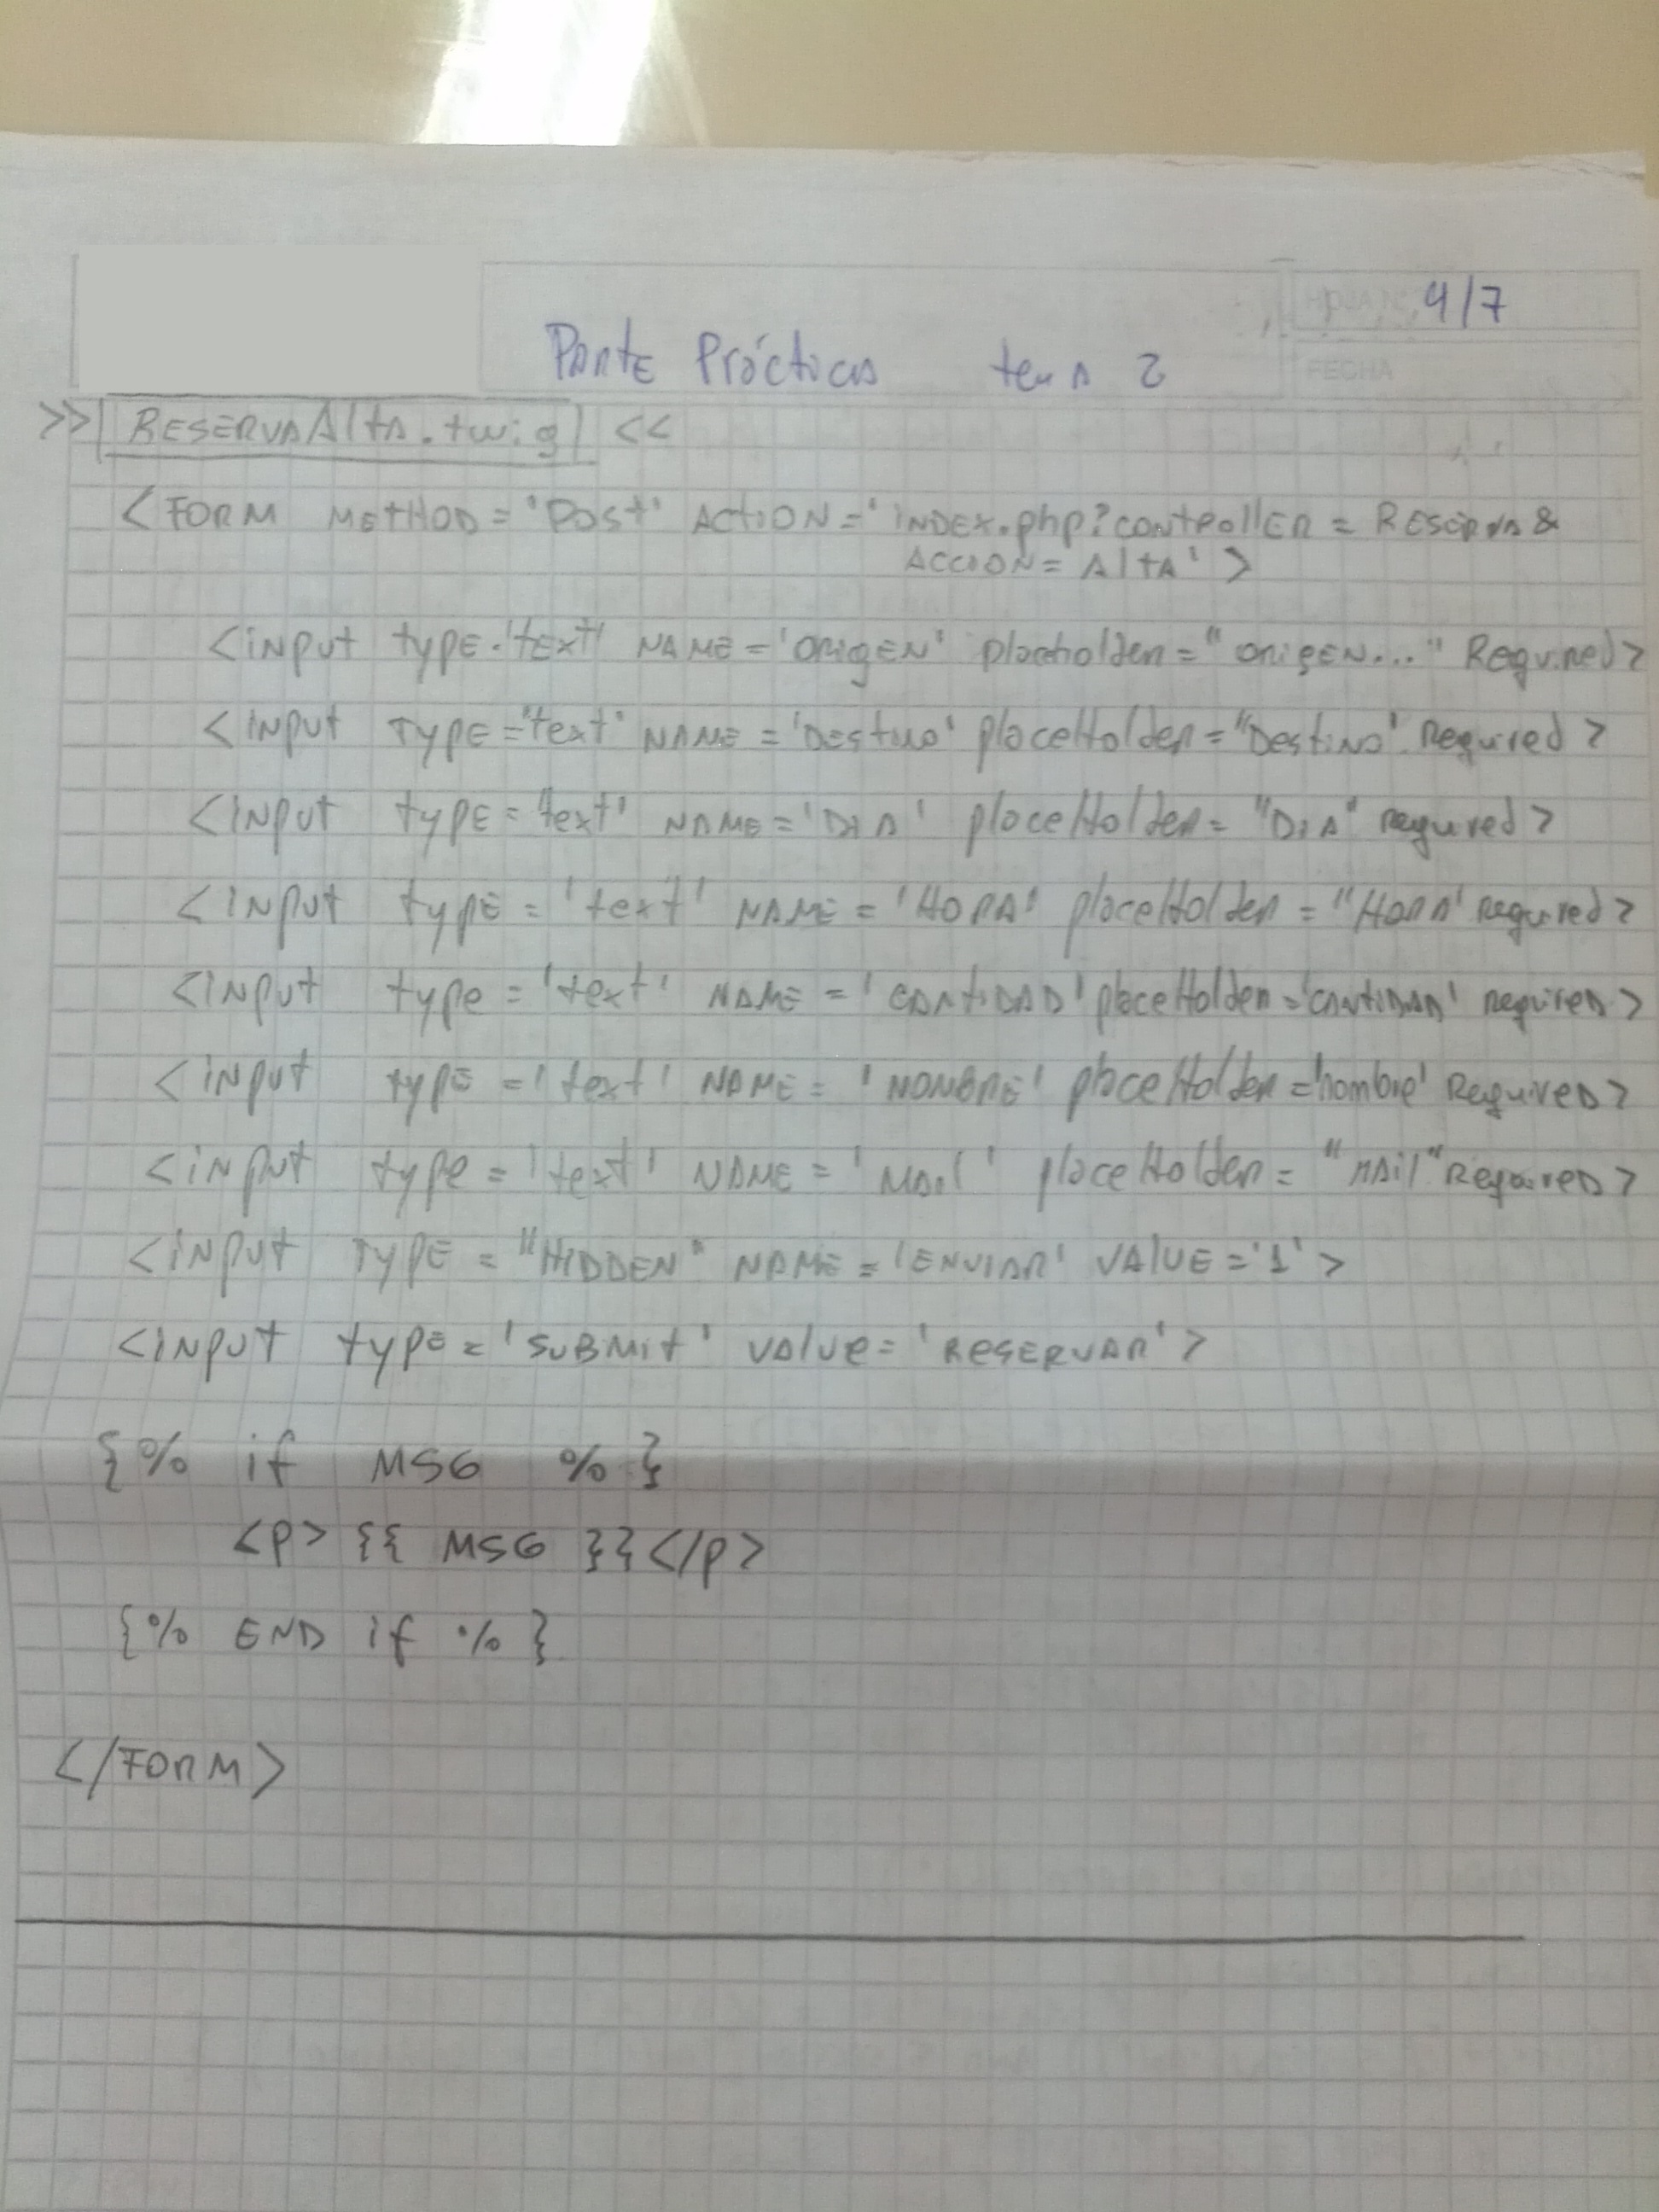 HOJA Nº 4/7
Parte Práctica tema 2
FECHA
>> RESERVAAltA.twig <<
<FORM METHOD='Post' ACtiON='INDEX.php?controllER=RESERVA&
ACCION=AltA'>
<input type='tEXt' NAME='ORigEN' placeholder="origEN..." Required>
<input TYPE='text' NAME='DEStino' placeHolder="Destino' Required>
<input type="text' NAME='DIA' placeHolder="DiA" required>
<input type='text' NAME='HORA' placeHolder="HORA' required>
<input type='text' NAME='CANtiDAD' placeHolder='CANtiDAD' required>
<input type='text' NAME='NOMBRE' placeHolder='nombre' Required>
<input type='text' NAME='MAil' placeHolder="MAil" Required>
<input TYPE="HIDDEN" NAME='ENVIAR' VAlUE='1'>
<input type='SUBMit' VAlue='RESERVAR'>
{% if MSG %}
<p>{{ MSG }}</p>
{% END if %}
</FORM>